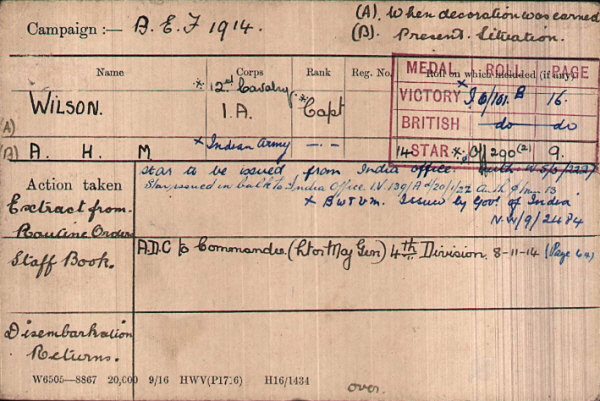 Campaign :— B. E. F 1914.
(A). When decoration was earned
(B). Present. Situation.
Name
Corps
Rank
Reg. No.
Roll on which included (if any)
MEDAL ROLL PAGE
WILSON.
* 12th Cavalry. *
I.A.
Capt
VICTORY * J.O/101. B 16.
BRITISH —do— do
(A)
(B)
A. H. M
* Indian Army
— · —
14 STAR * Off 290 (2) 9.
Action taken
Star to be issued from India Office.
Star issued in bulk to India Office IV
Extract from
* B W T V M. Issued by Govt of India
Routine Orders
N.W/9/2484
Staff Book.
A.D.C to Commander. (Lt or Maj Gen) 4th Division. 8-11-14 (Page 64)
Disembarkation
Returns.
W6505—8867 20,000 9/16 HWV(P1716) H16/1434
over.